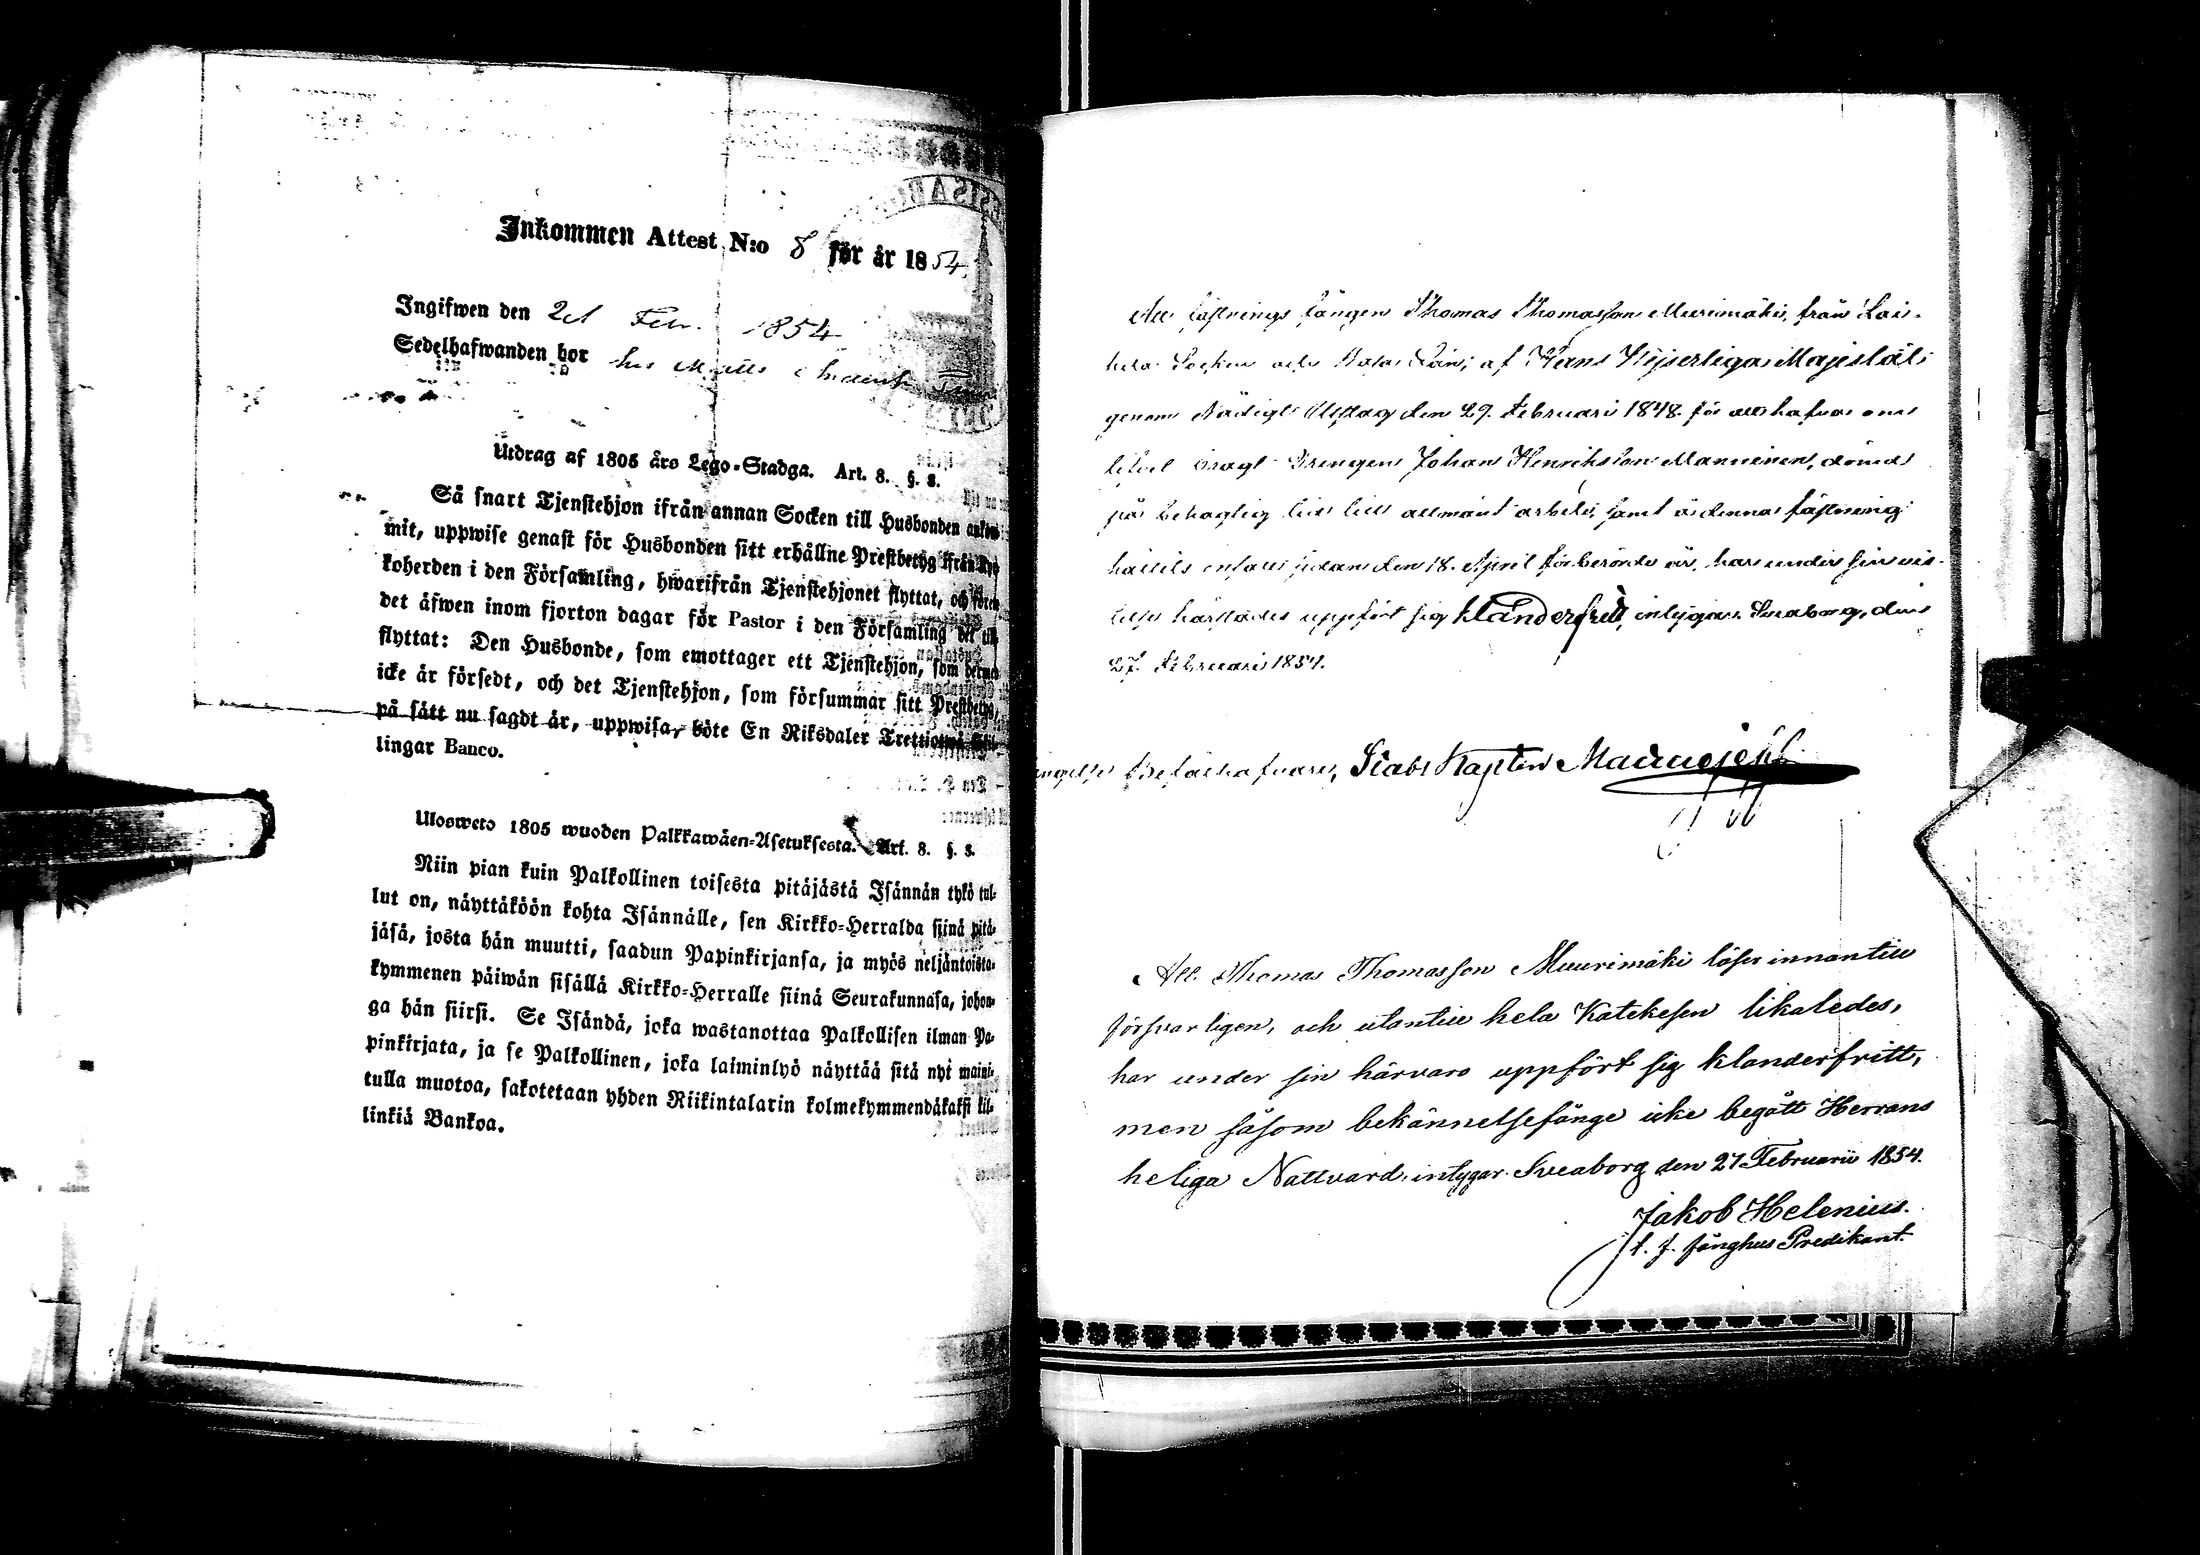 Inkommen Attest N:o 8 för år 1854.
Ingifwen den 21 Febr. 1854
Sedelhafwanden bor hos Matts
Utdrag af 1805 års Lego-Stadga. Art. 8. §. 2.
Så snart Tjenstehjon ifrån annan Socken till Husbonden ankom-
mit, uppwise genast för Husbonden sitt erhållne Prestbetyg ifrån Kyr-
koherden i den Församling, hwarifrån Tjenstehjonet flyttat, och
det äfwen inom fjorton dagar för Pastor i den Församling det till
flyttat: Den Husbonde, som emottager ett Tjenstehjon, som dermed
icke är försedt, och det Tjenstehjon, som försummar sitt Prestbetyg,
på sätt nu sagdt är, uppwisa, böte En Riksdaler Trettiotwå Skil-
lingar Banco.
Ulosweto 1805 wuoden Palkkawäen-Asetuksesta. Art. 8. §. 2.
Niin pian kuin Palkollinen toisesta pitäjästä Isännän tykö tul-
lut on, näyttäköön kohta Isännälle, sen Kirkko-Herralda siinä pitä-
jäsä, josta hän muutti, saadun Papinkirjansa, ja myös neljäntoista-
kymmenen päiwän sisällä Kirkko-Herralle siinä Seurakunnasa, johon-
ga hän siirsi. Se Isändä, joka wastanottaa Palkollisen ilman Pa-
pinkirjata, ja se Palkollinen, joka laiminlyö näyttää sitä nyt maini-
tulla muotoa, sakotetaan yhden Riikintalarin kolmekymmendäkaksi kil-
linkiä Bankoa.
Att fästnings fången Thomas Thomasson Muurimäki, från Lai-
hela Socken och Wasa Län, af Hans Kejserliga Majestät
genom Nådigt Utslag den 29. Februari 1848 för att hafva om
lifvet bragt Drengen Johan Henriksson Manninen, dömd
på behaglig tid till allmänt arbete, samt å denna fästning
hållits sedan den 18. April förberörde år, har under sin vis-
telse härstädes uppfört sig klanderfritt, intygas. Sveaborg, den
27. Februari 1854.
Befälhafvare, Stabs Kapten
Att Thomas Thomasson Muurimäki läser innantill
försvarligen, och utantill hela Katekesen likaledes,
har under sin härvaro uppfört sig klanderfritt,
men såsom bekännelsefånge icke begått Herrans
heliga Nattvard, intygar. Sveaborg den 27 Februarii 1854.
Jakob Helenius.
t. f. fånghus Predikant.